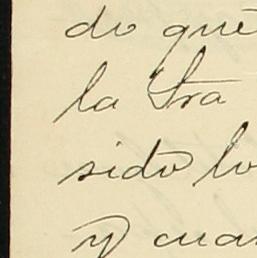 do que
la Sra
sido lo
y cuan